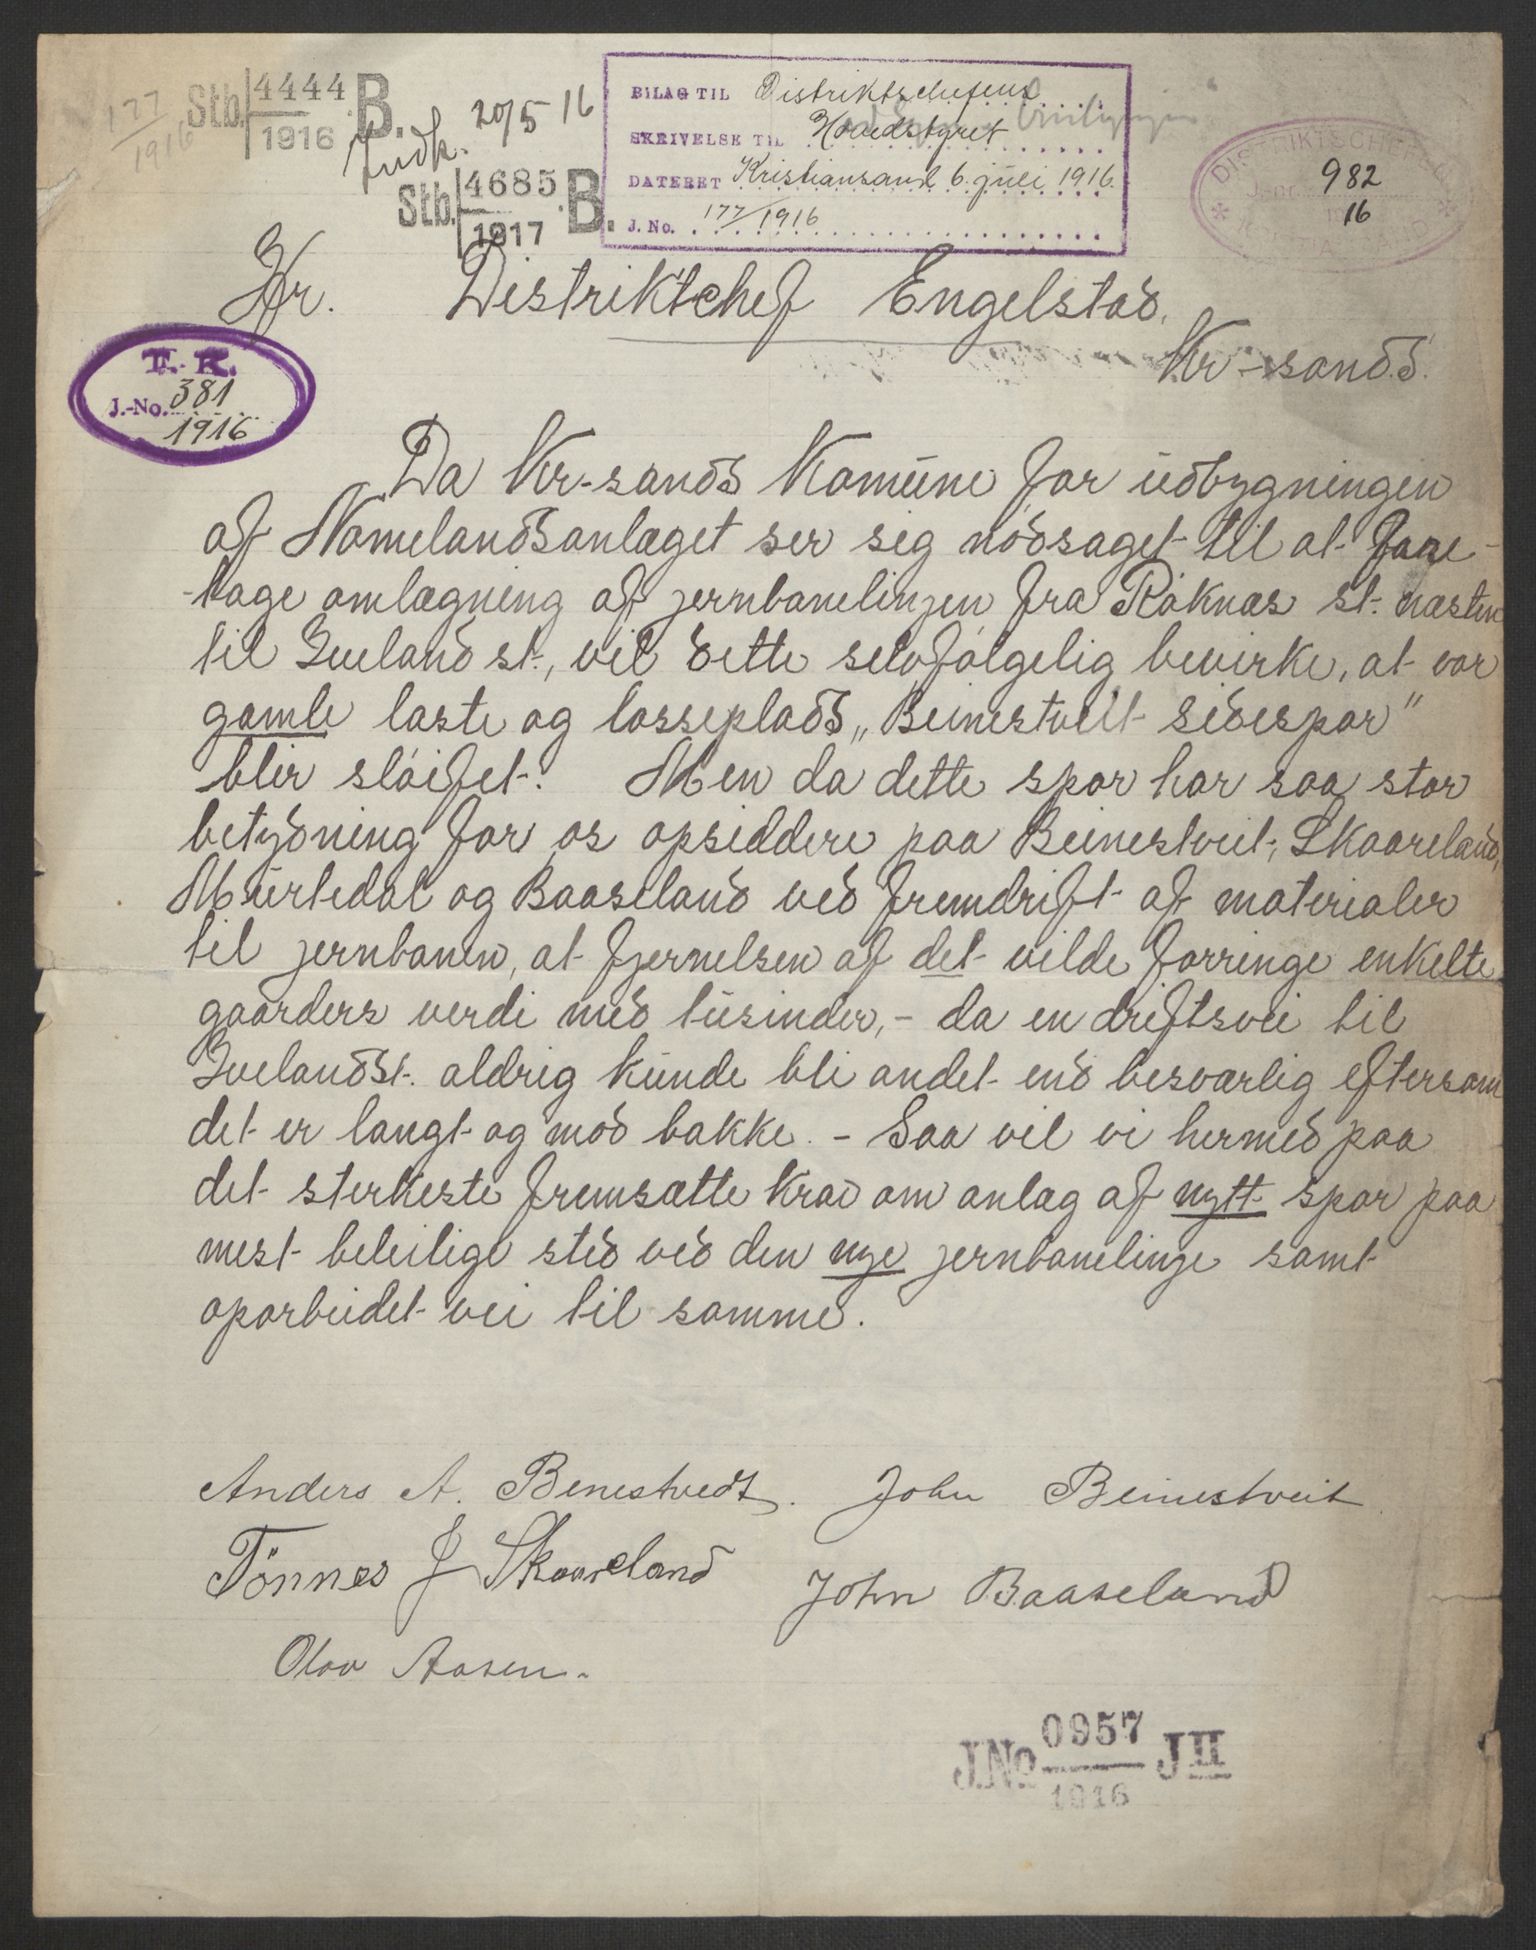 177
1916
Stb. 4444 B.
1916
Indk. 20/5 16
Stb. 4685 B.
1917
BILAG TIL Distriktschefens
SKRIVELSE TIL Hovedstyret
DATERET Kristiansand 6. juli 1916.
J. No. 177/1916
DISTRIKTSCHEFEN
J.-nr. 982
16
Hr. Distriktchef Engelstad.
Kr-sand S.
T. K.
J.-No. 381
1916
Da Kr-sands Komune for udbygningen
af Nomelandsanlæget ser sig nödsaget til at fore-
-tage omlægning af jernbanelinjen fra Röknæs st. næsten
til Iveland st., vil dette selvfölgelig bevirke, at vor
gamle laste og losseplads „Beinestveit sidespor"
blir slöifet. Men da dette spor har saa stor
betydning for os opsiddere paa Beinestveit, Skaareland,
Murtedal og Baaseland ved fremdrift af materialer
til jernbanen, at fjernelsen af det vilde forringe enkelte
gaarders verdi med tusinder, - da en driftsvei til
Ivelandst. aldrig kunde bli andet end besværlig eftersom
det er langt og mod bakke. - Saa vil vi hermed paa
det sterkeste fremsætte krav om anlæg af nytt spor paa
mest beleilige sted ved den nye jernbanelinje samt
oparbeidet vei til samme.
Anders A. Benestvedt. John Beinestveit
Tönnes J Skaareland
John Baaseland
Olav Aasen.
J.No 0957 J II
1916